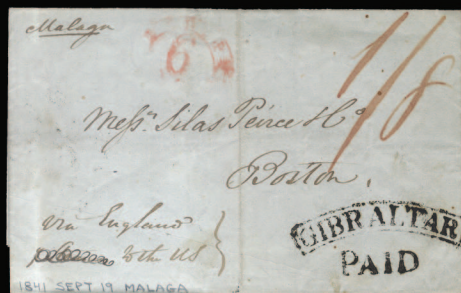 Malaga
1/8
Messrs. Silas Peirce & Co
Boston.
via England
to the US
GIBRALTAR
PAID
1841 SEPT 19 MALAGA